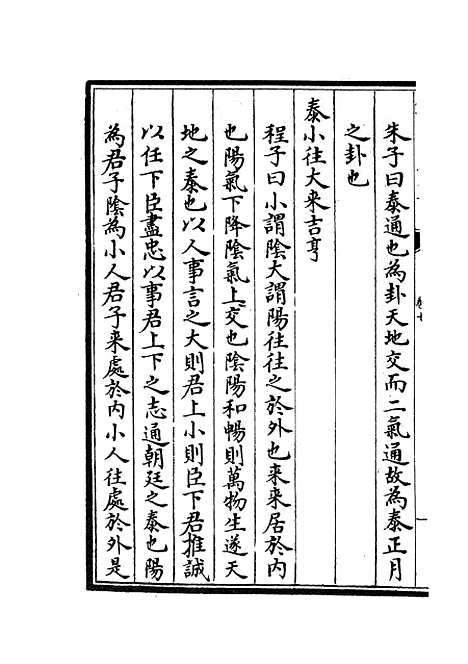 朱子曰泰通也為卦天地交而二氣通故為泰正月
之卦也
泰小往大来吉亨
程子曰小謂陰大謂陽往往之於外也来来居於内
也陽氣下降陰氣上交也陰陽和暢則萬物生遂天
地之泰也以人事言之大則君上小則臣下君推誠
以任下臣盡忠以事君上下之志通朝廷之泰也陽
為君子陰為小人君子来處於内小人往處於外是